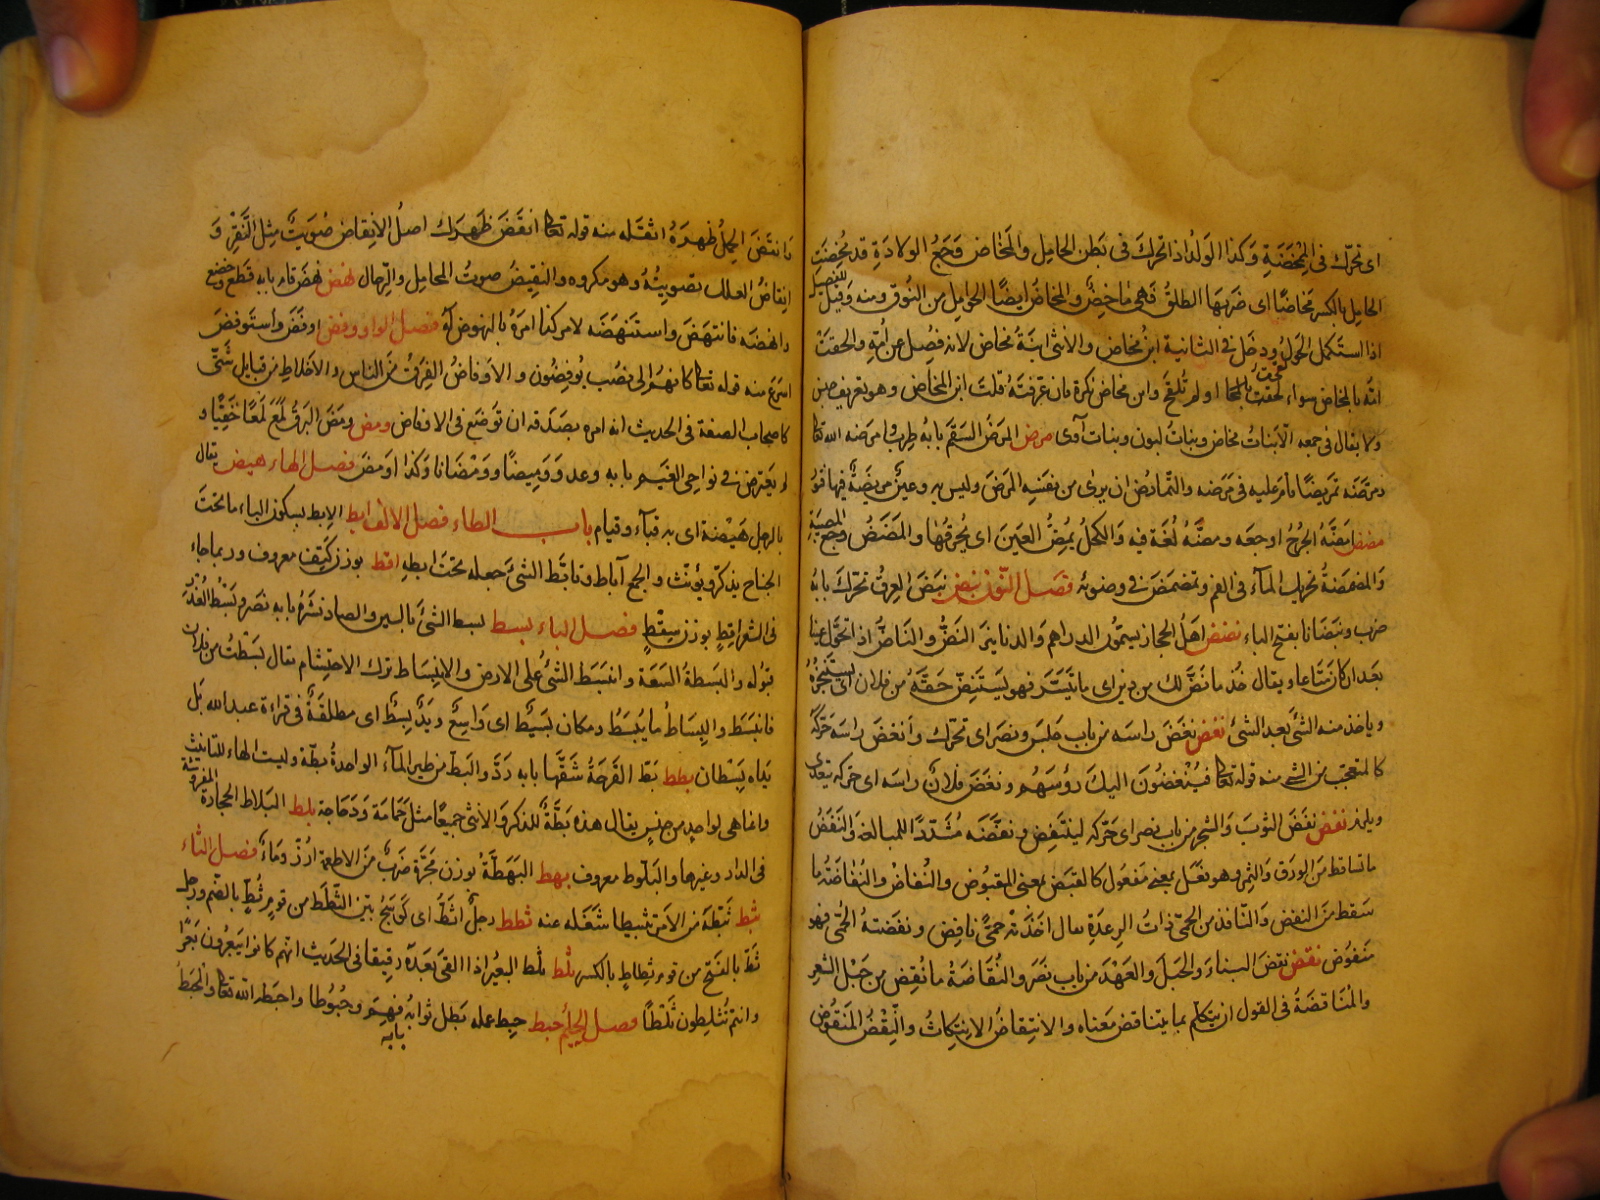 اى تحرّك فى الممخضة وكذا الولد اذا تحرك فى بطن الحامل والمخاض وجع الولادة قد مخضت
الحامل بالكسر مخاضًا اى ضربها الطلق فهى ماخض والمخاض ايضًا الحوامل من النوق ومنه وقيل للفصيل
اذا استكمل الحول ودخل فى الثانية ابن مخاض والانثى ابنة مخاض لانه فصل عن امّه والحقت
امّه بالمخاض سواء لحقت او لم تلقح وابن مخاض نكرة فان عرّفته قلت ابن المخاض وهو تعريف جنس
ولا يقال فى جمعه الّا بنات مخاض وبنات لبون وبنات آوى مرض المرض السقم بابه طرب وامرضه الله تعا
ومرّضه تمريضًا قام عليه فى مرضه والتّمارض ان يرى من نفسه المرض وليس به وعين مريضة فيها فتور
مضض امضّه الجرح اوجعه ومضّه لغة فيه والكحل يمضّ العين اى يحرقها والمضض وجع المصيبة
والمضمضة تحريك المآء فى الفم وتمضمض فى وضوئه فصل النّون نبض نبض العرق تحرّك بابه
ضرب ونبضانا بفتح الباء نضض اهل الحجاز يسمّون الدراهم والدنانير النضّ والناضّ اذا تحوّل عينا
بعد ان كان متاعا ويقال خذ ما نضّ لك من دين اى ما تيسّر فهو يستنضّ حقّه من فلان اى يستنجزه
وياخذ منه الشئ بعد الشئ نغض نغض راسه من باب جلس ونصر اى تحرّك وانغض راسه حرّكه
كالمتعجب من الشئ منه قوله تعا فسينغضون اليك رؤسهم ونغض فلان راسه اى حرّكه يتعدّى
ويلزم نفض نفض الثوب والشجر من باب نصر اى حرّكه لينتفض ونفّضه مشدّدًا للمبالغة والنفض
ما تساقط من الورق والثمر وهو فعل بمعنى مفعول كالقبض بمعنى المقبوض والنفاض والنفاضة ما
سقط من النفض والنّافض من الحمّى ذات الرعدة يقال اخذته حمّى نافض ونفضته الحمّى فهو
منفوض نقض نقض البناء والحبل والعهد من باب نصر والنّقاضة ما نقض من حبل الشعر
والمناقضة فى القول ان يتكلم بما يتناقض معناه والانتقاض الانتكاث والنّقض المنقوض
وانقض الحمل ظهره اثقله منه قوله تعا انقض ظهرك اصل الانقاض صويت مثل النّقر و
انقاض العلك تصويته وهو مكروه والنقيض صوت المحامل والرّحال نهض نهض قام بابه قطع وخضع
وانهضه فانتهض واستنهضه لامر كذا امره بالنهوض له فصل الواو وفض اوفض واستوفض
اسرع منه قوله تعا كانهم الى نصب يوفضون والاوفاض الفرق من الناس والاخلاط من قبايل شتّى
كاصحاب الصفة فى الحديث انه امر بصدقه ان توضع فى الاوفاض ومض ومض البرق لمع لمعًا خفيّا و
لم يعترض فى نواحى الغيم بابه وعد ووميضًا وومضانا وكذا اومض فصل الهاء هيض يقال
بالرجل هيضة اى به قياء وقيام باب الطاء فصل الالف ابط الابط بسكون الباء ما تحت
الجناح يذكّر ويؤنّث والجمع آباط وتابّط الشئ جعله تحت ابطه اقط بوزن كتف معروف وربما جاء
فى الشعر اقط بوزن سقط فصل الباء بسط بسط الشئ بالسين والصاد نشره بابه نصر وبسط العذر
قبوله والبسطة السّعة وانبسط الشئ على الارض والانبساط ترك الاحتشام يقال بسطت من فلان
فانبسط والبساط ما يبسط ومكان بسيط اى واسع ويد بسط اى مطلقة فى قراءة عبد الله بل
يداه بسطان بطط بطّ القرحة شقّها بابه ردّ والبطّ من طير المآء الواحدة بطّة وليست الهاء للتانيث
وانما هى لواحد من جنس يقال هذه بطّة للذكر والانثى جميعًا مثل حمامة ودجاجة بلط البلاط الحجارة المفروشة
فى الدار وغيرها والبلّوط معروف بهط البهطّة بوزن مجرّة ضرب من الاطعمة ارزّ وماء فصل الثاء
ثبط ثبّطه عن الامر تثبيطا شغله عنه ثطط رجل اثطّ اى كوسج بيّن الثّطط من قوم ثطّ بالضّم ورجل
ثطّ بالفتح من قوم ثطاط بالكسر ثلط ثلط البعير اذا القى بعره رقيقا فى الحديث انهم كانوا يبعرون بعرًا
وانتم تثلطون ثلطًا فصل الحاء حبط حبط عمله بطل ثوابه بابه فهم وحبوطا واحبطه الله تعا والحبط